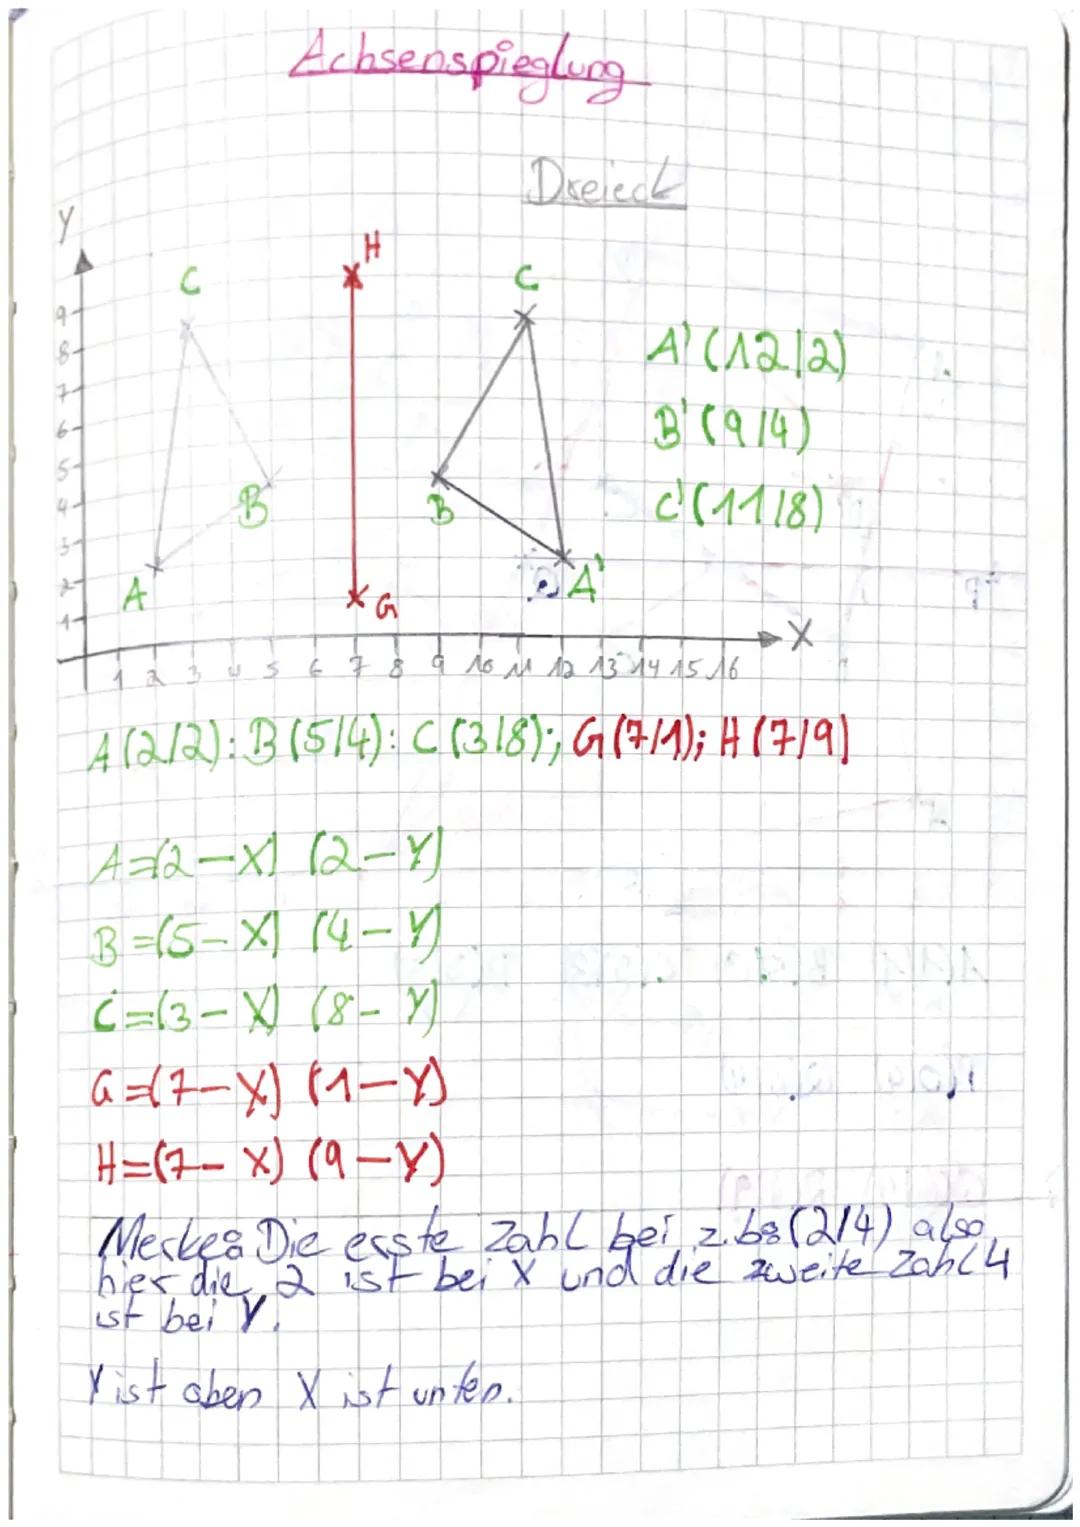 Achsenspieglung
Dreieck
Y
H
C
C
9
8
7
6
5
4
3
2
1
A' (12/2)
B' (9/4)
C' (11/8)
B
B
A
A'
G
X
1 2 3 4 5 6 7 8 9 10 11 12 13 14 15 16
A (2/2): B (5/4): C (3/8); G (7/1); H (7/9)
A=(2-X) (2-Y)
B=(5-X) (4-Y)
C=(3-X) (8-Y)
G=(7-X) (1-Y)
H=(7-X) (9-Y)
Merke: Die erste Zahl bei z.b: (2/4) also
hier die 2 ist bei X und die zweite Zahl 4
ist bei Y.
Y ist oben X ist unten.